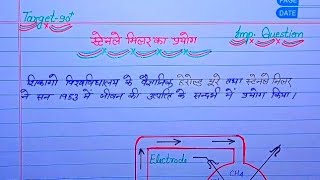 PAGE
DATE
Target-90+
Imp. Question
स्टेनले मिलर का प्रयोग
शिकागो विश्वविद्यालय के वैज्ञानिक हेरोल्ड यूरे तथा स्टेनले मिलर
ने सन 1953 में जीवन की उत्पत्ति के सन्दर्भ में प्रयोग किया।
Electrode
CH4